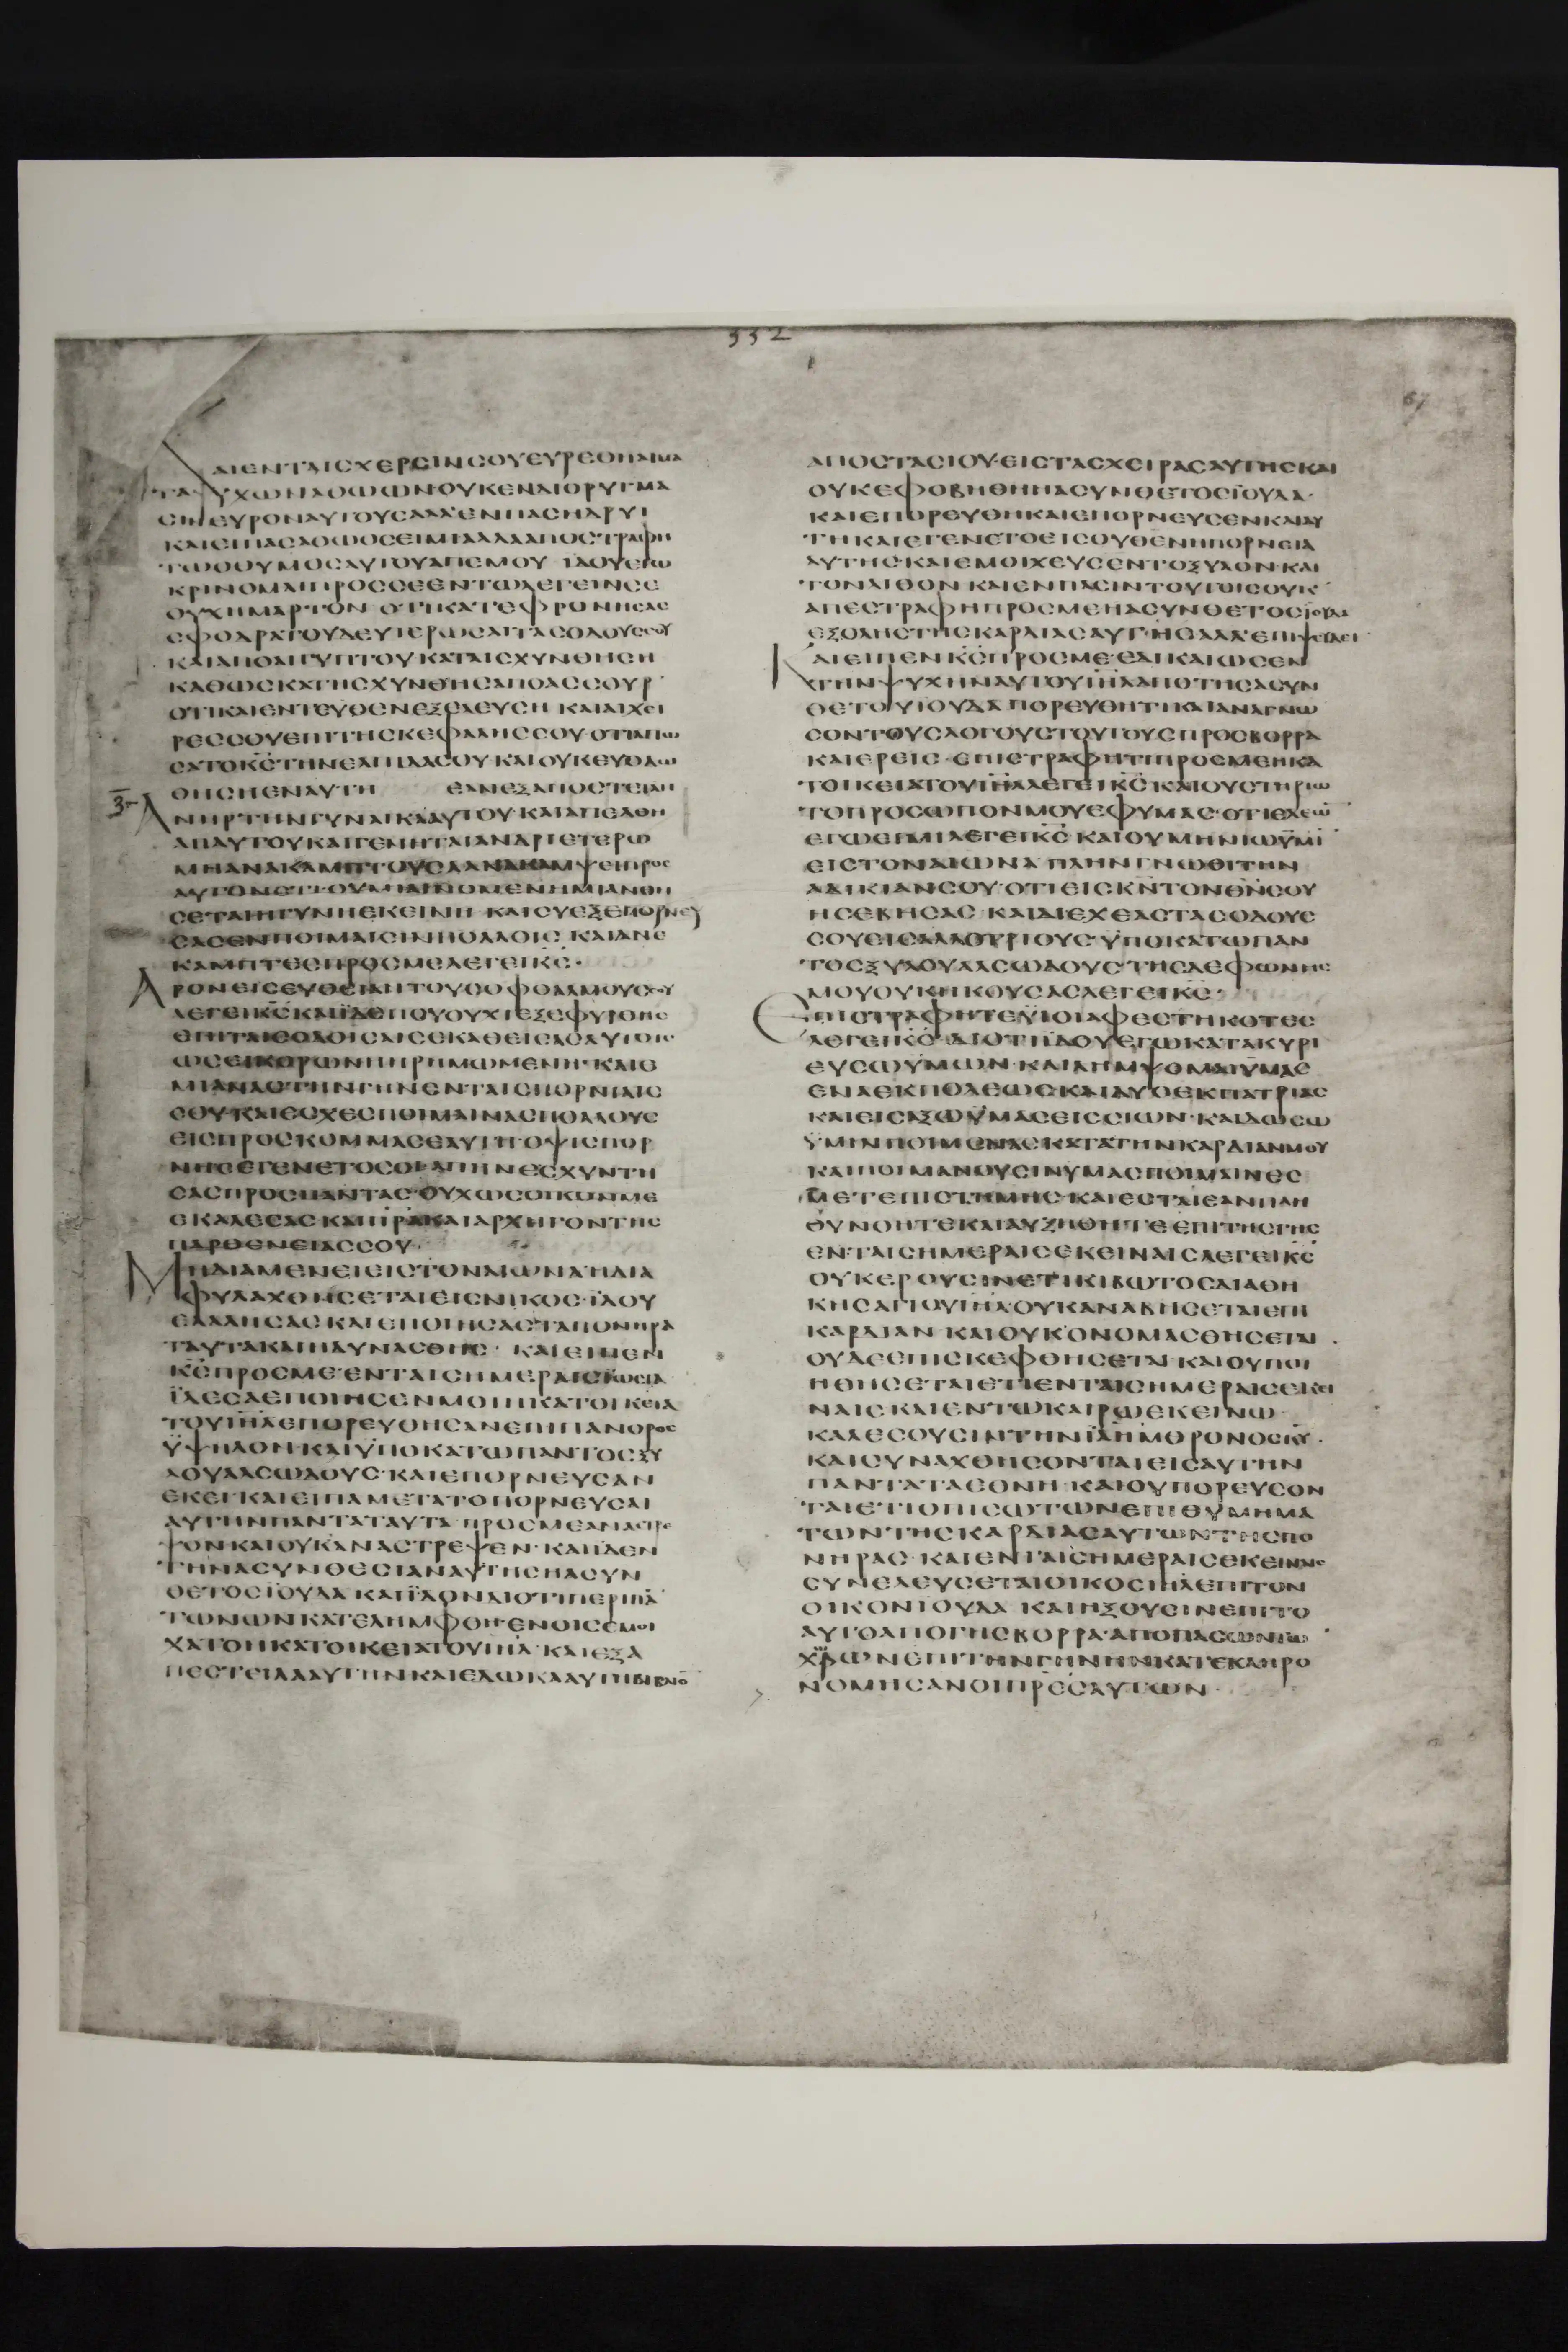 332
67
ΚΑΙΕΝΤΑΙΣΧΕΡΣΙΝΣΟΥΕΥΡΕΘΗΑΙΜΑ
ΤΑΨΥΧΩΝΑΘΩΩΝΟΥΚΕΝΔΙΟΡΥΓΜΑ
ΣΙΝΕΥΡΟΝΑΥΤΟΥΣΑΛΛΕΝΠΑΣΗΔΡΥΙ
ΚΑΙΕΙΠΑΣΑΘΩΟΣΕΙΜΙΑΛΛΑΑΠΟΣΤΡΑΦΗ
ΤΩΘΟΥΜΟΣΑΥΤΟΥΑΠΕΜΟΥ ΙΔΟΥΕΓΩ
ΚΡΙΝΟΜΑΙΠΡΟΣΣΕΕΝΤΩΛΕΓΕΙΝΣΕ
ΟΥΧΗΜΑΡΤΟΝ ΟΤΙΚΑΤΕΦΡΟΝΗΣΑΣ
ΣΦΟΔΡΑΤΟΥΔΕΥΤΕΡΩΣΑΙΤΑΣΟΔΟΥΣΣΟΥ
ΚΑΙΑΠΟΑΙΓΥΠΤΟΥΚΑΤΑΙΣΧΥΝΘΗΣΗ
ΚΑΘΩΣΚΑΤΗΣΧΥΝΘΗΣΑΠΟΑΣΣΟΥΡ
ΟΤΙΚΑΙΕΝΤΕΥΘΕΝΕΞΕΛΕΥΣΗ ΚΑΙΑΙΧΕΙ
ΡΕΣΣΟΥΕΠΙΤΗΣΚΕΦΑΛΗΣΣΟΥ·ΟΤΙΑΠΩ
ΣΑΤΟΚΣΤΗΝΕΛΠΙΔΑΣΟΥΚΑΙΟΥΚΕΥΟΔΩ
ΘΗΣΗΕΝΑΥΤΗ ΕΑΝΕΞΑΠΟΣΤΕΙΛΗ
ΑΝΗΡΤΗΝΓΥΝΑΙΚΑΑΥΤΟΥ·ΚΑΙΑΠΕΛΘΗ
ΑΠΑΥΤΟΥΚΑΙΓΕΝΗΤΑΙΑΝΔΡΙΕΤΕΡΩ
ΜΗΑΝΑΚΑΜΠΤΟΥΣΑΑΝΑΚΑΜΨΕΙΠΡΟΣ
ΑΥΤΟΝΕΤΙΟΥΜΙΑΙΝΟΜΕΝΗΜΙΑΝΘΗ
ΣΕΤΑΙΗΓΥΝΗΕΚΕΙΝΗ·ΚΑΙΣΥΕΞΕΠΟΡΝΕΥ
ΣΑΣΕΝΠΟΙΜΑΙΣΙΝΠΟΛΛΟΙΣ ΚΑΙΑΝΕ
ΚΑΜΠΤΕΣΠΡΟΣΜΕΛΕΓΕΙΚΣ·
ΑΡΟΝΕΙΣΕΥΘΕΙΑΝΤΟΥΣΟΦΘΑΛΜΟΥΣΣΟΥ
ΛΕΓΕΙΚΣΚΑΙΪΔΕΠΟΥΟΥΧΙΕΞΕΦΥΡΘΗΣ
ΕΠΙΤΑΙΣΟΔΟΙΣΑΙΣΕΚΑΘΕΙΣΑΣΑΥΤΟΙΣ
ΩΣΕΙΚΟΡΩΝΗΗΡΗΜΩΜΕΝΗ·ΚΑΙΕ
ΜΙΑΝΑΣΤΗΝΓΗΝΕΝΤΑΙΣΠΟΡΝΙΑΙΣ
ΣΟΥΚΑΙΕΣΧΕΣΠΟΙΜΑΙΝΑΣΠΟΛΛΟΥΣ
ΕΙΣΠΡΟΣΚΟΜΜΑΣΕΑΥΤΗ·ΟΨΙΣΠΟΡ
ΝΗΣΕΓΕΝΕΤΟΣΟΙΑΠΗΝΕΣΧΥΝΤΗ
ΣΑΣΠΡΟΣΠΑΝΤΑΣ·ΟΥΧΩΣΟΙΚΟΝΜΕ
ΕΚΑΛΕΣΑΣΚΑΙΠΡΑΚΑΙΑΡΧΗΓΟΝΤΗΣ
ΠΑΡΘΕΝΕΙΑΣΣΟΥ·
ΜΗΔΙΑΜΕΝΕΙΕΙΣΤΟΝΑΙΩΝΑΉΔΙΑ
ΦΥΛΑΧΘΗΣΕΤΑΙΕΙΣΝΙΚΟΣ·ΪΔΟΥ
ΕΛΑΛΗΣΑΣΚΑΙΕΠΟΙΗΣΑΣΤΑΠΟΝΗΡΑ
ΤΑΥΤΑΚΑΙΗΔΥΝΑΣΘΗΣ· ΚΑΙΕΙΠΕΝ
ΚΣΠΡΟΣΜΕ·ΕΝΤΑΙΣΗΜΕΡΑΙΣΪΩΣΕΙΑ
ΪΔΕΣΑΕΠΟΙΗΣΕΝΜΟΙΗΚΑΤΟΙΚΕΙΑ
ΤΟΥΙΗΛΕΠΟΡΕΥΘΗΣΑΝΕΠΙΠΑΝΟΡΟΣ
ΫΨΗΛΟΝ·ΚΑΙΫΠΟΚΑΤΩΠΑΝΤΟΣΞΥ
ΛΟΥΑΛΣΩΔΟΥΣ·ΚΑΙΕΠΟΡΝΕΥΣΑΝ
ΕΚΕΙ·ΚΑΙΕΙΠΑΜΕΤΑΤΟΠΟΡΝΕΥΣΑΙ
ΑΥΤΗΝΠΑΝΤΑΤΑΥΤΑ ΠΡΟΣΜΕΑΝΑΣΤΡΕ
ΨΟΝΚΑΙΟΥΚΑΝΑΣΤΡΕΨΕΝ·ΚΑΙΪΔΕΝ
ΤΗΝΑΣΥΝΘΕΣΙΑΝΑΥΤΗΣΗΑΣΥΝ
ΘΕΤΟΣΪΟΥΔΑ ΚΑΙΪΔΟΝΔΙΟΤΙΠΕΡΙΠΑ
ΤΩΝΩΝΚΑΤΕΛΗΜΦΘΗ·ΕΝΟΙΣΕΜΟΙ
ΧΑΤΟΗΚΑΤΟΙΚΕΙΑΤΟΥΙΗΛ·ΚΑΙΕΞΑ
ΠΕΣΤΕΙΛΑΑΥΤΗΝΚΑΙΕΔΩΚΑΑΥΤΗΒΙΒΛΙΟ
ΑΠΟΣΤΑΣΙΟΥ·ΕΙΣΤΑΣΧΕΙΡΑΣΑΥΤΗΣΚΑΙ
ΟΥΚΕΦΟΒΗΘΗΗΑΣΥΝΘΕΤΟΣΪΟΥΔΑ·
ΚΑΙΕΠΟΡΕΥΘΗΚΑΙΕΠΟΡΝΕΥΣΕΝΚΑΙΑΥ
ΤΗΚΑΙΕΓΕΝΕΤΟΕΙΣΟΥΘΕΝΗΠΟΡΝΕΙΑ
ΑΥΤΗΣΚΑΙΕΜΟΙΧΕΥΣΕΝΤΟΞΥΛΟΝ·ΚΑΙ
ΤΟΝΛΙΘΟΝ ΚΑΙΕΝΠΑΣΙΝΤΟΥΤΟΙΣΟΥΚ
ΑΠΕΣΤΡΑΦΗΠΡΟΣΜΕΗΑΣΥΝΘΕΤΟΣΪΟΥΔΑ
ΕΞΟΛΗΣΤΗΣΚΑΡΔΙΑΣΑΥΤΗΣΑΛΛΕΠΙΨΕΥΔΕΙ
ΚΑΙΕΙΠΕΝΚΣΠΡΟΣΜΕ·ΕΔΙΚΑΙΩΣΕΝ
ΤΗΝΨΥΧΗΝΑΥΤΟΥΙΗΛΑΠΟΤΗΣΑΣΥΝ
ΘΕΤΟΥΙΟΥΔΑ ΠΟΡΕΥΘΗΤΙΚΑΙΑΝΑΓΝΩ
ΣΟΝΤΟΥΣΛΟΓΟΥΣΤΟΥΤΟΥΣΠΡΟΣΒΟΡΡΑ
ΚΑΙΕΡΕΙΣ·ΕΠΙΣΤΡΑΦΗΤΙΠΡΟΣΜΕΗΚΑ
ΤΟΙΚΕΙΑΤΟΥΙΗΛΛΕΓΕΙΚΣΚΑΙΟΥΣΤΗΡΙΩ
ΤΟΠΡΟΣΩΠΟΝΜΟΥΕΦΥΜΑΣ·ΟΤΙΕΛΕΩ
ΕΓΩΕΙΜΙΛΕΓΕΙΚΣ ΚΑΙΟΥΜΗΝΙΩΫΜΙ
ΕΙΣΤΟΝΑΙΩΝΑ ΠΛΗΝΓΝΩΘΙΤΗΝ
ΑΔΙΚΙΑΝΣΟΥ·ΟΤΙΕΙΣΚΝΤΟΝΘΝΣΟΥ
ΗΣΕΒΗΣΑΣ ΚΑΙΔΙΕΧΕΑΣΤΑΣΟΔΟΥΣ
ΣΟΥΕΙΣΑΛΛΟΤΡΙΟΥΣ·ΫΠΟΚΑΤΩΠΑΝ
ΤΟΣΞΥΛΟΥΑΛΣΩΔΟΥΣ·ΤΗΣΔΕΦΩΝΗΣ
ΜΟΥΟΥΚΗΚΟΥΣΑΣΛΕΓΕΙΚΣ·
ΕΠΙΣΤΡΑΦΗΤΕΫΙΟΙΑΦΕΣΤΗΚΟΤΕΣ
ΛΕΓΕΙΚΣ·ΔΙΟΤΙΪΔΟΥΕΓΩΚΑΤΑΚΥΡΙ
ΕΥΣΩΫΜΩΝ·ΚΑΙΛΗΜΨΟΜΑΙΫΜΑΣ
ΕΝΑΕΚΠΟΛΕΩΣΚΑΙΔΥΟΕΚΠΑΤΡΙΑΣ
ΚΑΙΕΙΣΑΞΩΫΜΑΣΕΙΣΣΙΩΝ·ΚΑΙΔΩΣΩ
ΫΜΙΝΠΟΙΜΕΝΑΣΚΑΤΑΤΗΝΚΑΡΔΙΑΝΜΟΥ
ΚΑΙΠΟΙΜΑΝΟΥΣΙΝΥΜΑΣΠΟΙΜΑΙΝΕΣ
ΜΕΤΕΠΙΣΤΗΜΗΣ·ΚΑΙΕΣΤΑΙΕΑΝΠΛΗ
ΘΥΝΘΗΤΕΚΑΙΑΥΞΗΘΗΤΕΕΠΙΤΗΣΓΗΣ
ΕΝΤΑΙΣΗΜΕΡΑΙΣΕΚΕΙΝΑΙΣΛΕΓΕΙΚΣ
ΟΥΚΕΡΟΥΣΙΝΕΤΙΚΙΒΩΤΟΣΔΙΑΘΗ
ΚΗΣΑΓΙΟΥΙΗΛΟΥΚΑΝΑΒΗΣΕΤΑΙΕΠΙ
ΚΑΡΔΙΑΝ ΚΑΙΟΥΚΟΝΟΜΑΣΘΗΣΕΤΑΙ
ΟΥΔΕΕΠΙΣΚΕΦΘΗΣΕΤΑΙ·ΚΑΙΟΥΠΟΙ
ΗΘΗΣΕΤΑΙΕΤΙΕΝΤΑΙΣΗΜΕΡΑΙΣΕΚΕΙ
ΝΑΙΣΚΑΙΕΝΤΩΚΑΙΡΩΕΚΕΙΝΩ
ΚΑΛΕΣΟΥΣΙΝΤΗΝΙΛΗΜΘΡΟΝΟΣΚΥ·
ΚΑΙΣΥΝΑΧΘΗΣΟΝΤΑΙΕΙΣΑΥΤΗΝ
ΠΑΝΤΑΤΑΕΘΝΗ·ΚΑΙΟΥΠΟΡΕΥΣΟΝ
ΤΑΙΕΤΙΟΠΙΣΩΤΩΝΕΠΙΘΥΜΗΜΑ
ΤΩΝΤΗΣΚΑΡΔΙΑΣΑΥΤΩΝΤΗΣΠΟ
ΝΗΡΑΣ·ΚΑΙΕΝΤΑΙΣΗΜΕΡΑΙΣΕΚΕΙΝΑΙΣ
ΣΥΝΕΛΕΥΣΕΤΑΙΟΙΚΟΣΙΗΛΕΠΙΤΟΝ
ΟΙΚΟΝΙΟΥΔΑ ΚΑΙΗΞΟΥΣΙΝΕΠΙΤΟ
ΑΥΤΟΑΠΟΓΗΣΒΟΡΡΑ·ΑΠΟΠΑΣΩΝΤΩ
ΧΩΡΩΝΕΠΙΤΗΝΓΗΝΗΝΚΑΤΕΚΛΗΡΟ
ΝΟΜΗΣΑΝΟΙΠΡΕΣΑΥΤΩΝ·